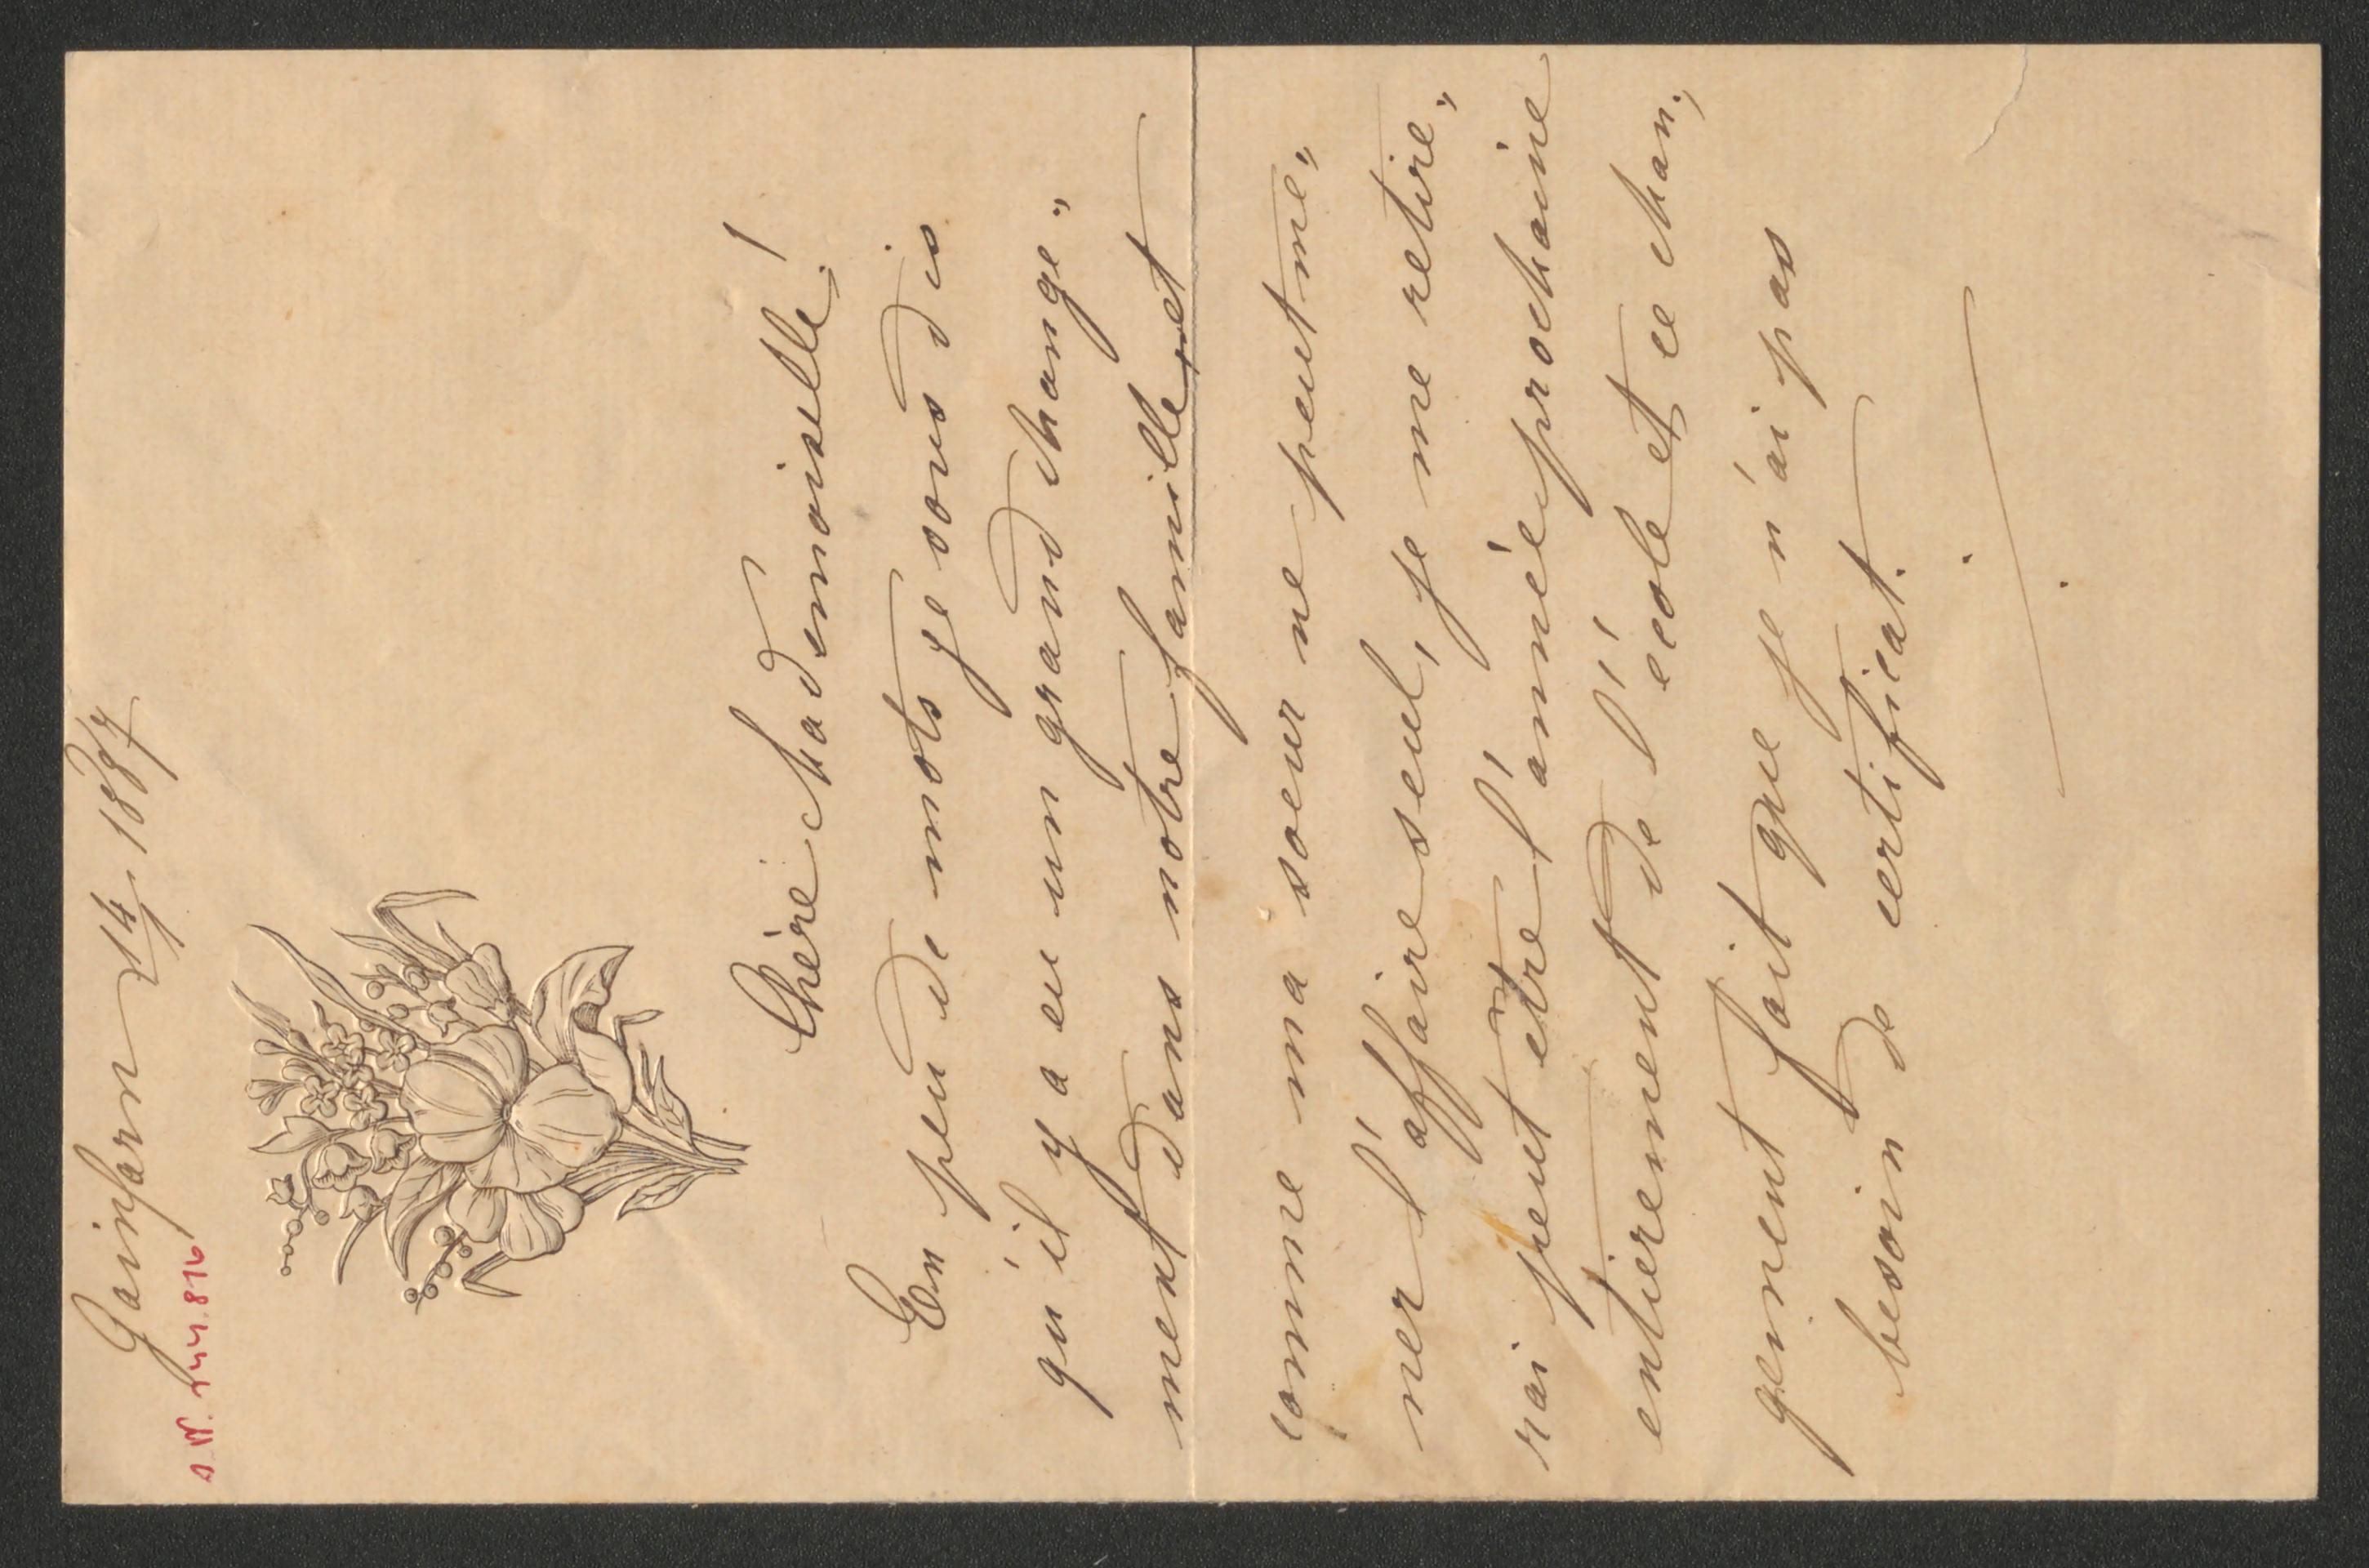 Gainfarn 14/ 1887
Chère Mademoiselle!
En peu de mots je vous dis
qu'il y a eu un grand change„
ment dans notre famille, et
comme ma soeur ne peut me„
ner l'affaire seul, je me retire„
rai peut être l'année prochaine
entièrement de l'école et ce chan„
gement fait que je n'ai pas
besoin de certificat.